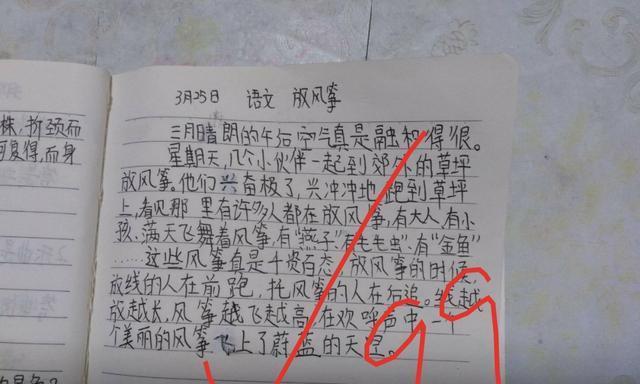 株,折颈而
可复得,而身
3月25日 语文 放风筝
三月晴朗的午后空气真是融和得很。
星期天,几个小伙伴一起到郊外的草坪
放风筝。他们兴奋极了,兴冲冲地跑到草坪
上,看见那里有许多人都在放风筝,有大人,有小
孩,满天飞舞着风筝,有“燕子”有毛毛虫、有“金鱼”
……这些风筝真是千姿百态,放风筝的时候,
放线的人在前跑,托风筝的人在后追。线越
放越长,风筝越飞越高在欢呼声中,一个
美丽的风筝飞上了蔚蓝的天空。
99